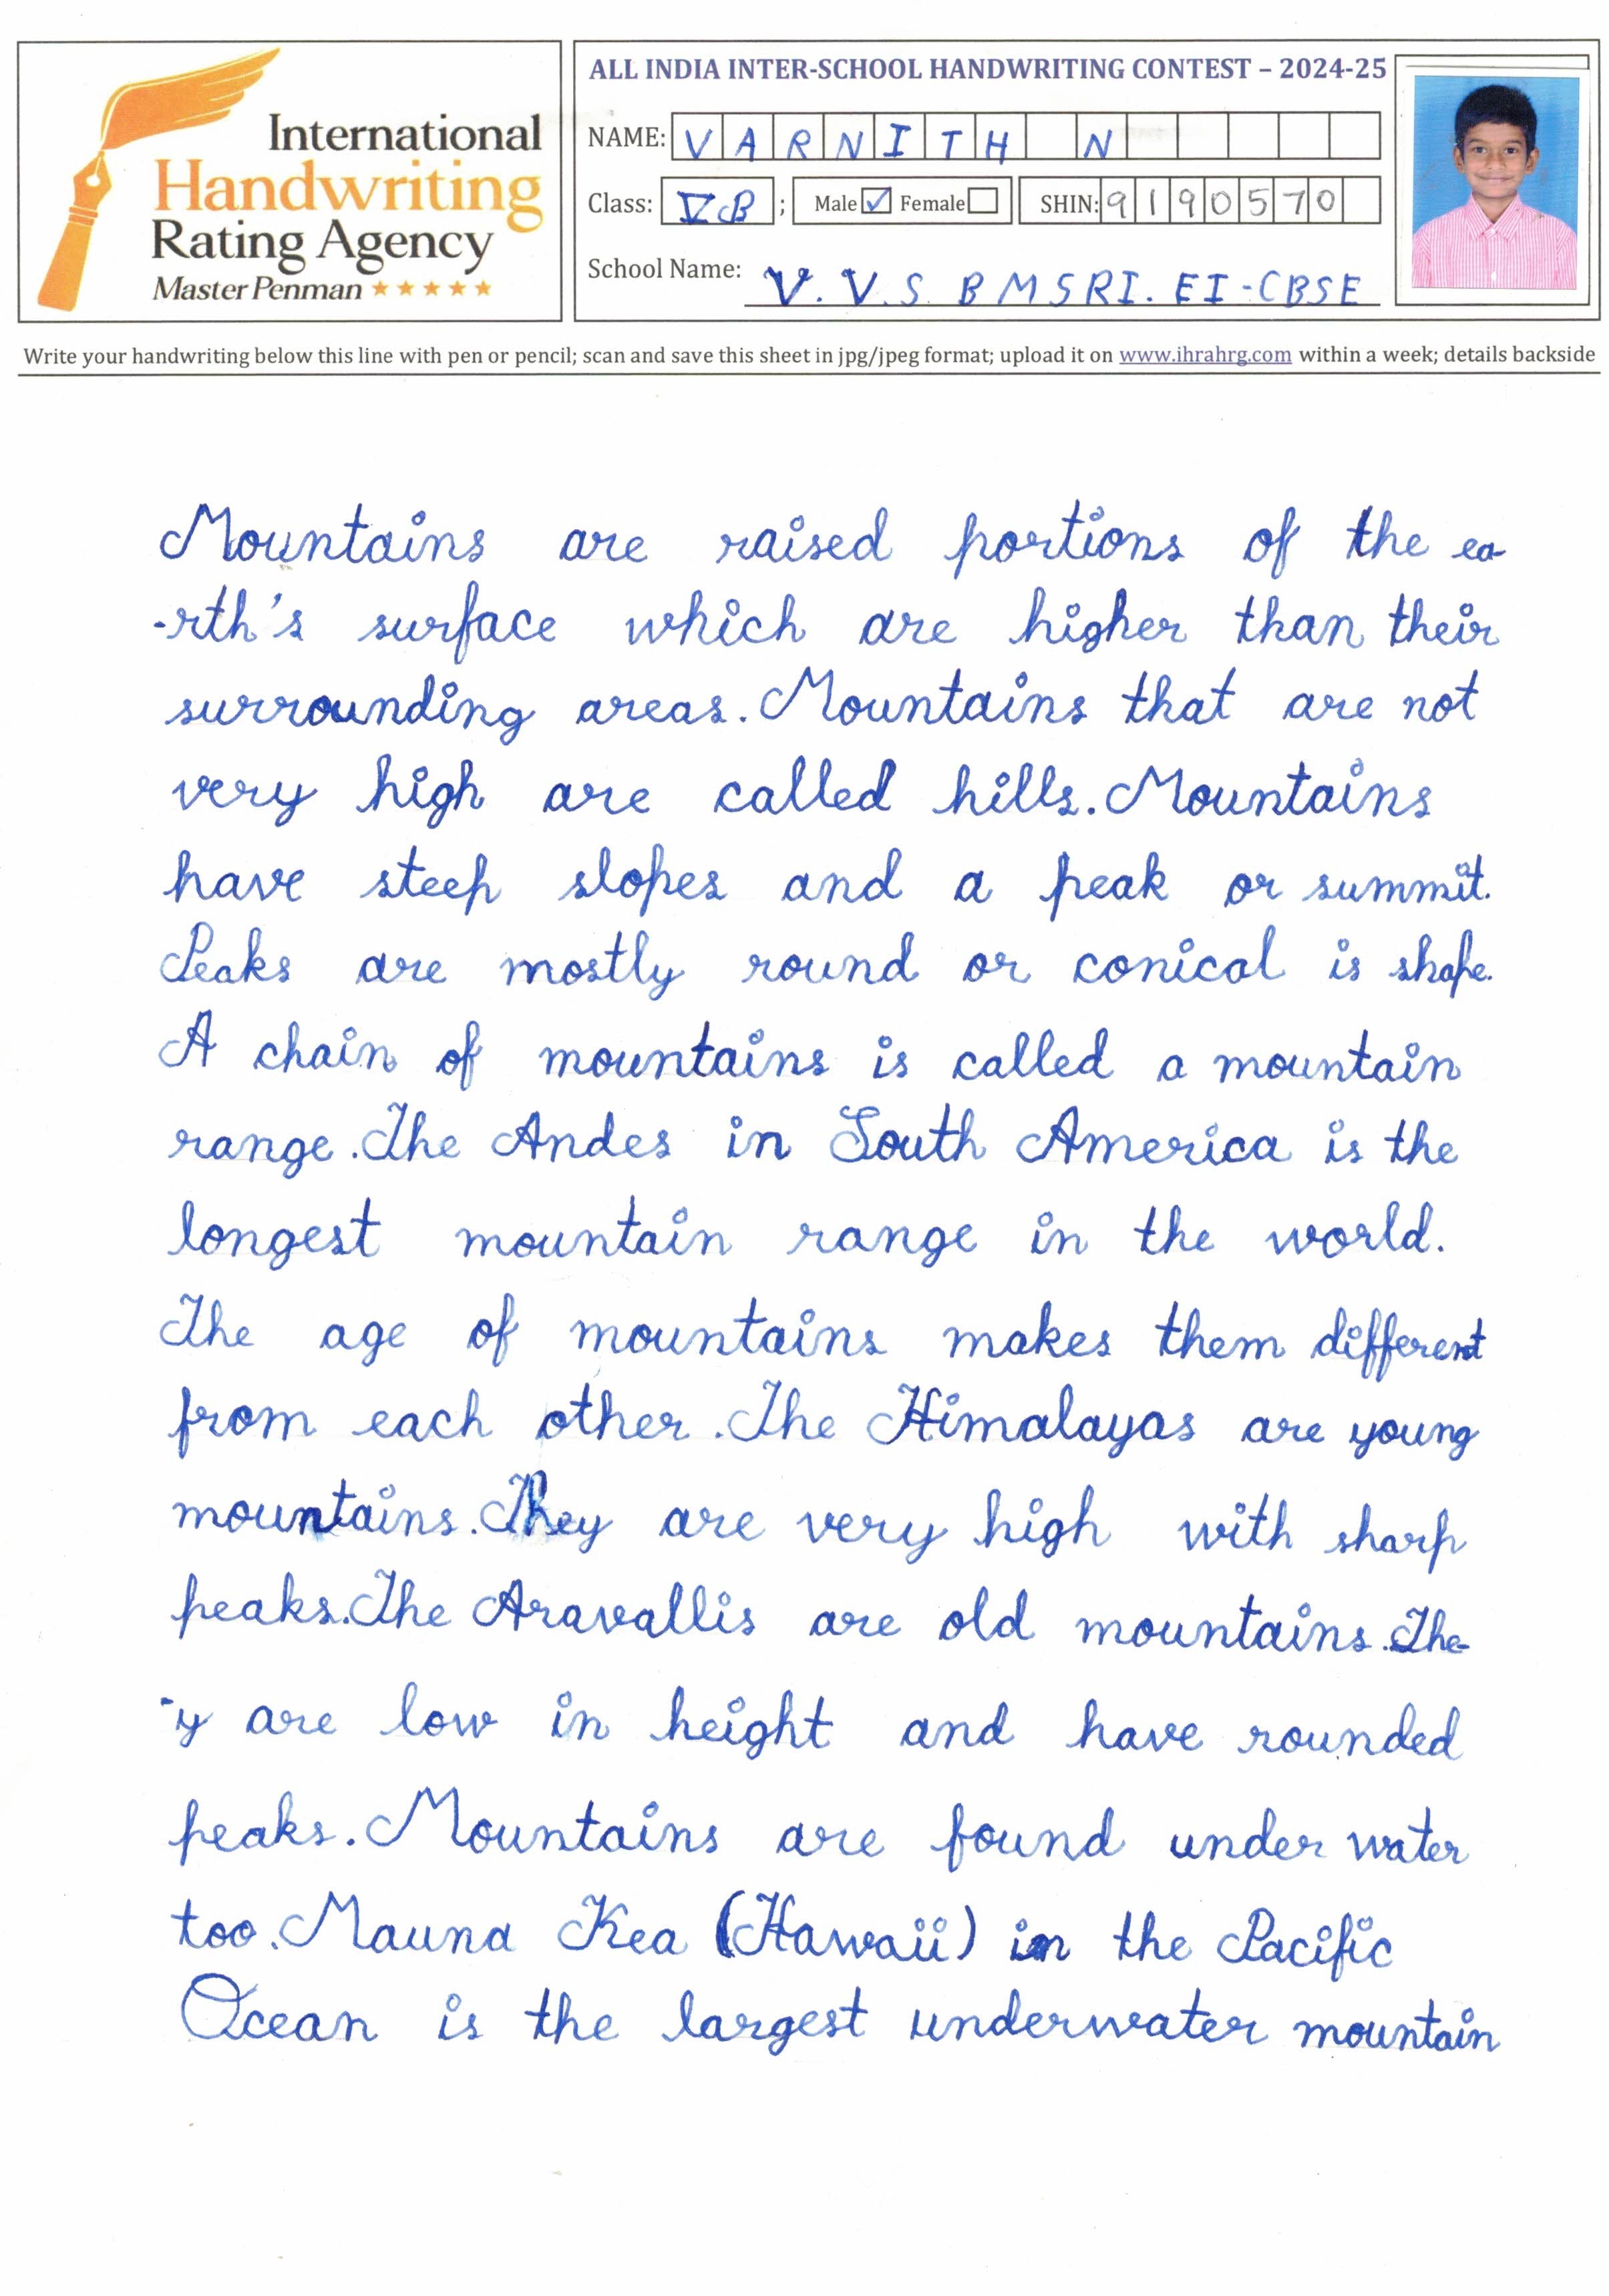 International
Handwriting
Rating Agency
Master Penman
ALL INDIA INTER-SCHOOL HANDWRITING CONTEST – 2024-25
NAME: VARNITH N
Class: V B ; Male ✓ Female SHIN: 9190570
School Name: V.V.S BMSRI. EI-CBSE
Write your handwriting below this line with pen or pencil; scan and save this sheet in jpg/jpeg format; upload it on www.ihrahrg.com within a week; details backside
Mountains are raised portions of the ea
-rth's surface which are higher than their
surrounding areas. Mountains that are not
very high are called hills. Mountains
have steep slopes and a peak or summit.
Peaks are mostly round or conical is shape.
A chain of mountains is called a mountain
range. The Andes in South America is the
longest mountain range in the world.
The age of mountains makes them different
from each other. The Himalayas are young
mountains. They are very high with sharp
peaks. The Aravallis are old mountains. The-
-y are low in height and have rounded
peaks. Mountains are found under water
too. Mauna Kea (Hawaii) in the Pacific
Ocean is the largest underwater mountain